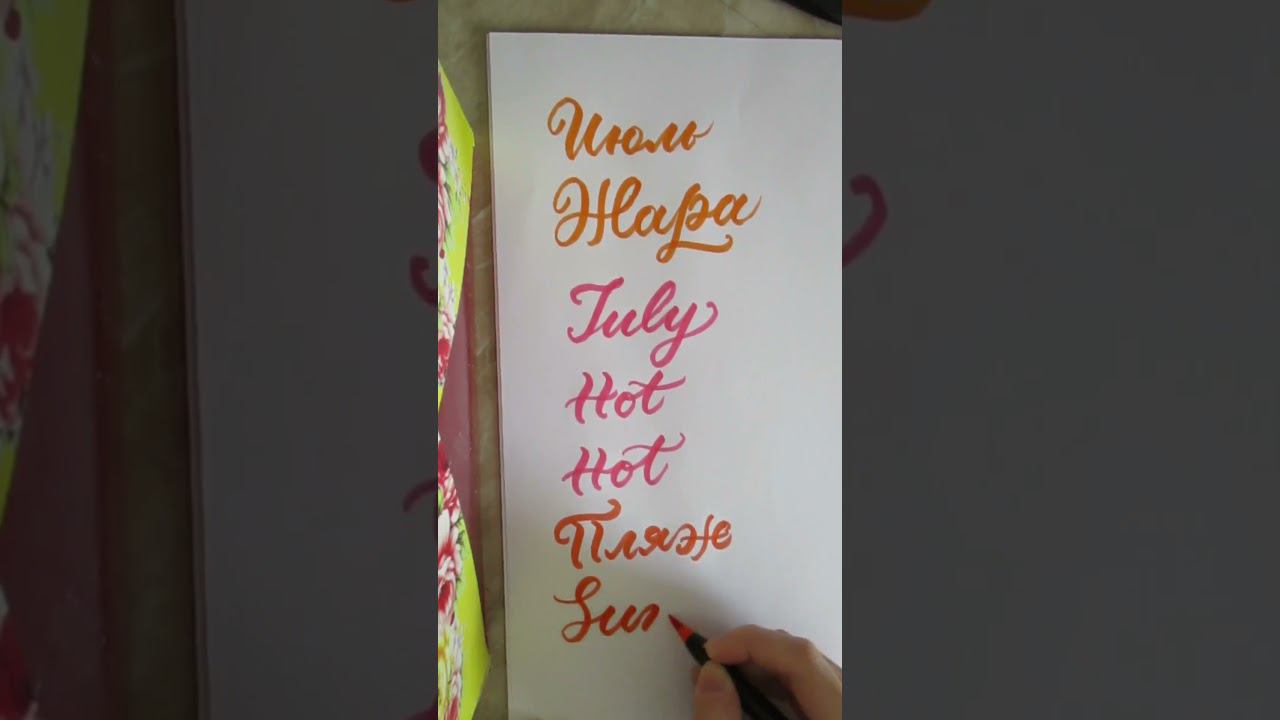 Июль
Жара
July
Hot
Hot
Пляж
Sun